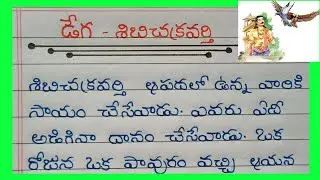 డేగ - శిబిచక్రవర్తి
శిబిచక్రవర్తి ఆపదలో ఉన్న వారికి
సాయం చేసేవాడు. ఎవరు ఏది
అడిగినా దానం చేసేవాడు. ఒక
రోజున ఒక పావురం వచ్చి ఆయన